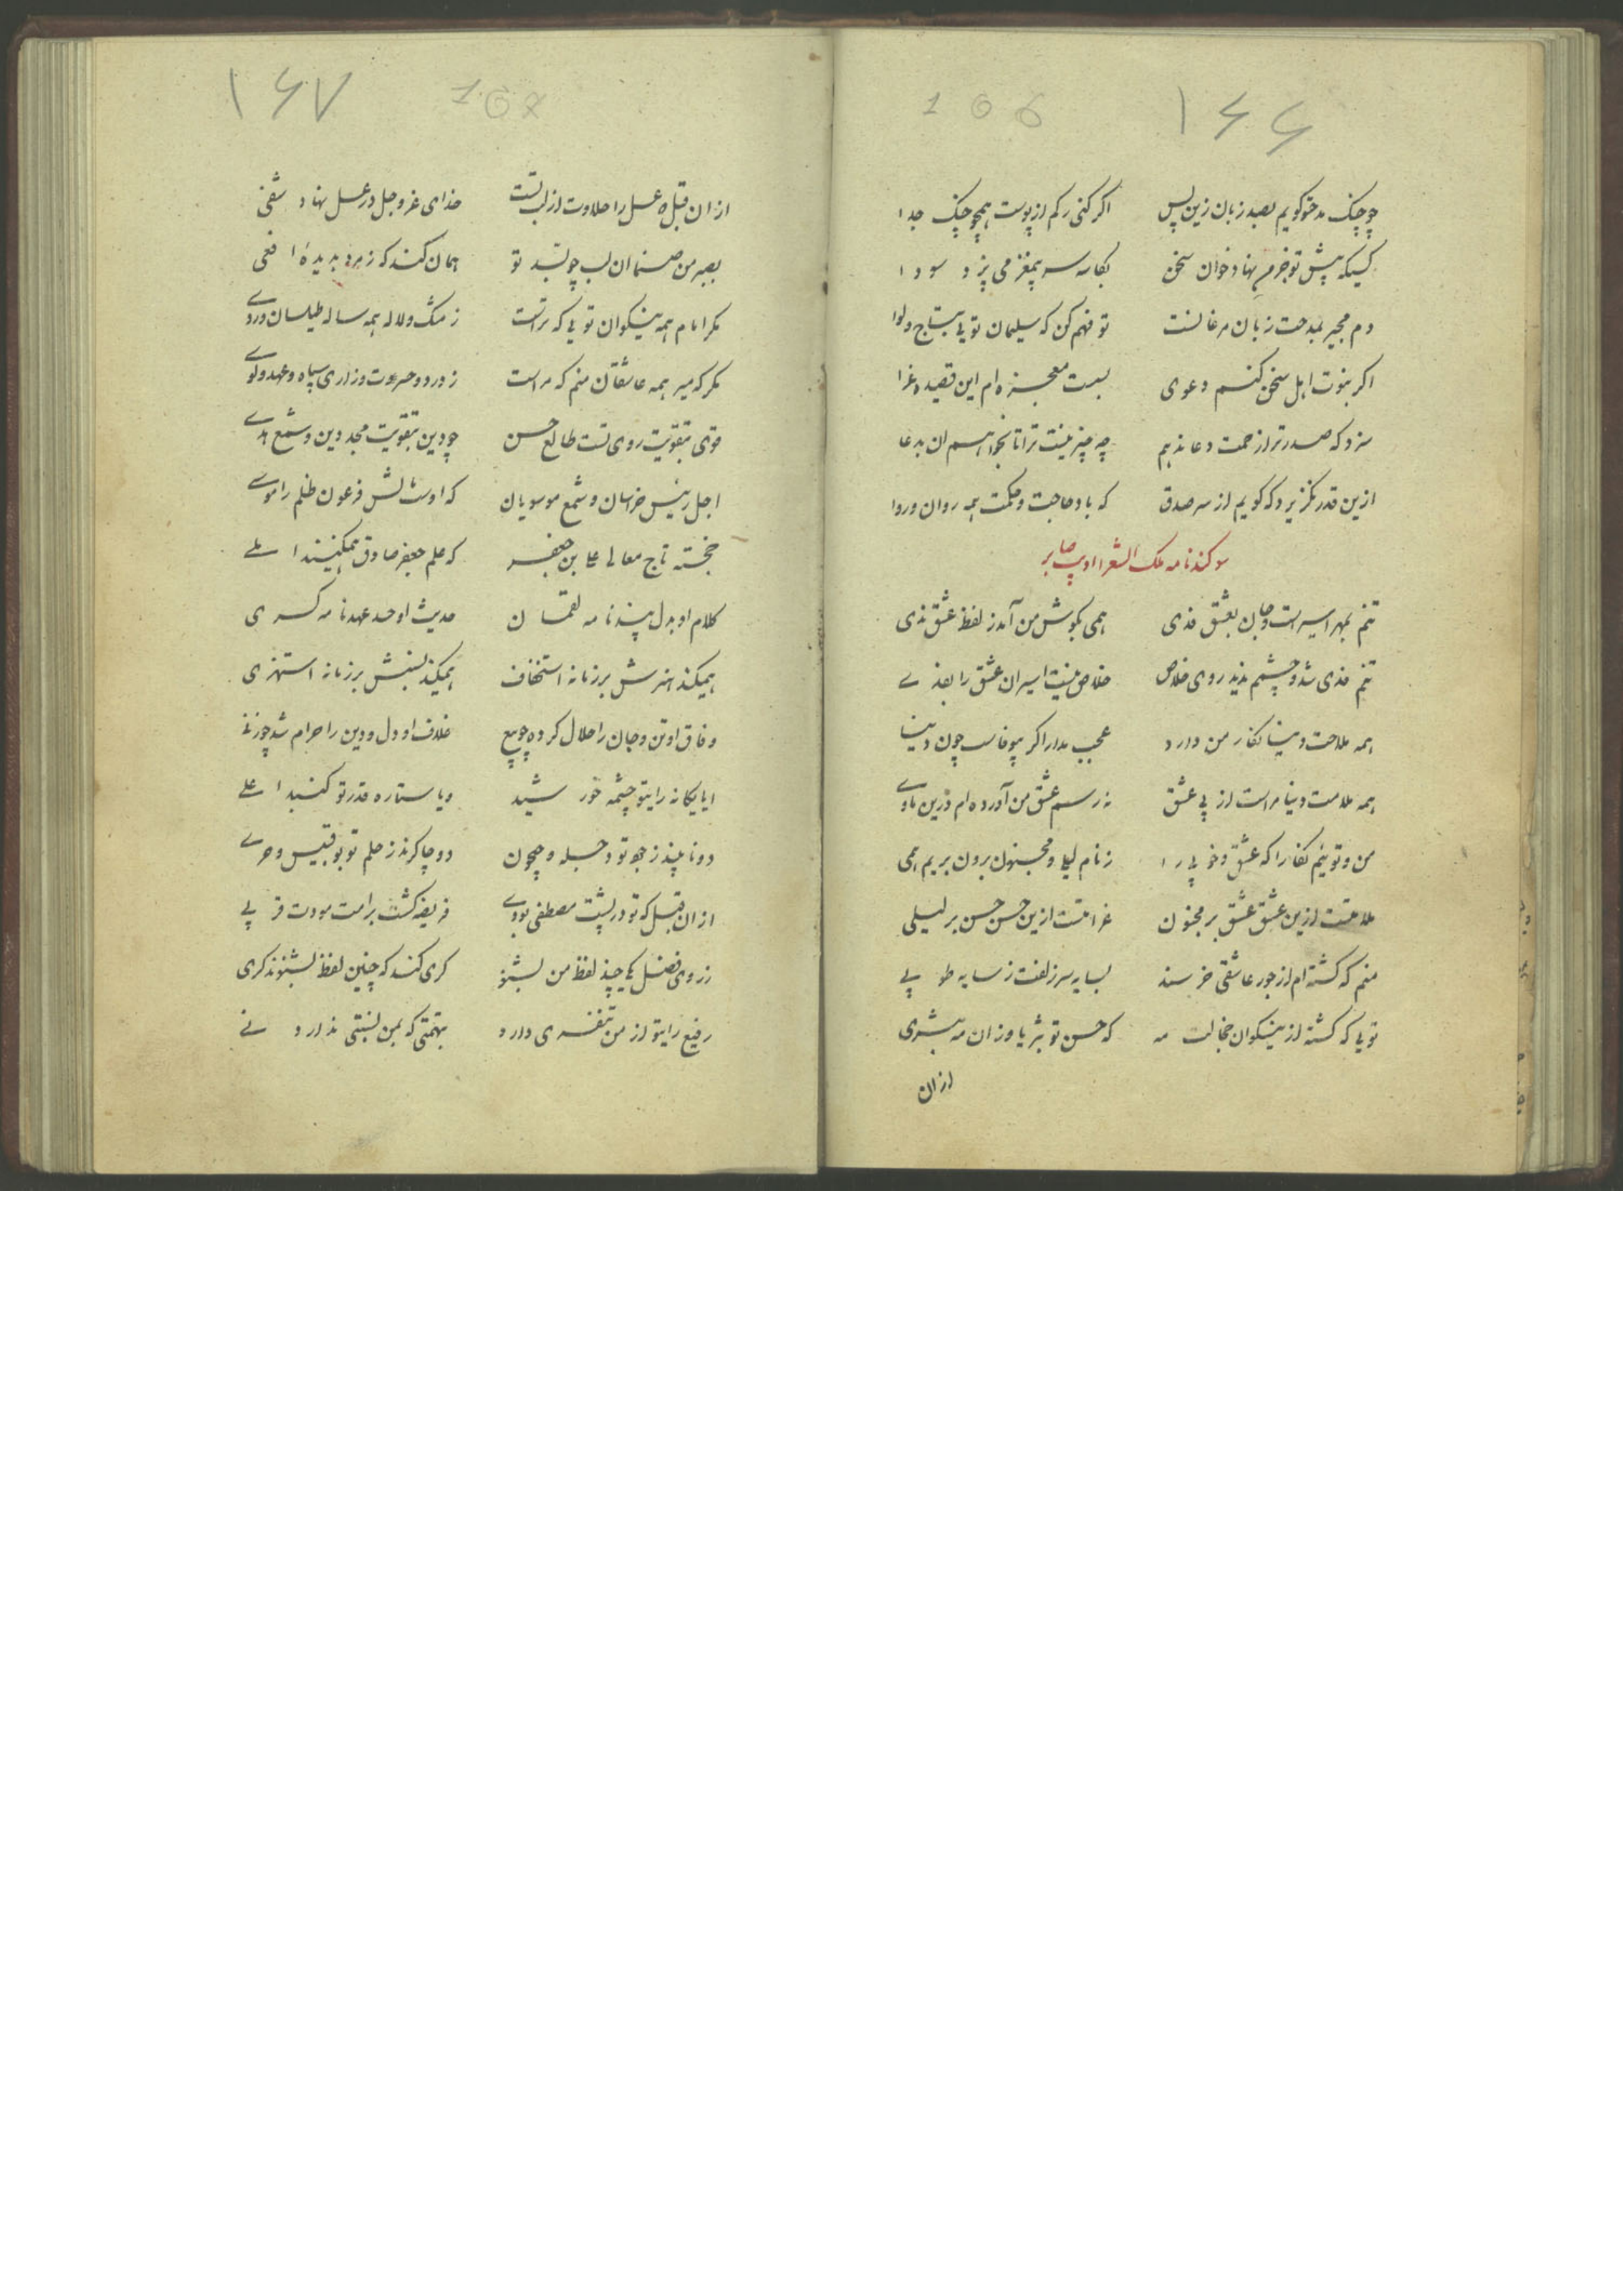 ۱۶۶
166
چو چنک مدحتو کویم بصد زبان زین پس اکر کنی رکم از پوست همچو چنک جدا
کسیکه پیش تو جز من نهاد خوان سخن بکاسه سر بیمغز می پزد سودا
دم مجیر بمدحت زبان مرغانست تو فهم کن که سلیمان تویی بتاج و لوا
اکر نبوت اهل سخن کنم دعوی بست معجزه ام این قصیده غرا
سزد که صدر ترا زحمت دعا ندهم چه چیز نیست ترا تا بخواهم ان بدعا
ازین قدر نکزیرد که کویم از سر صدق که باد حاجت و حکمت همه روان و روا
سوکندنامه ملک الشعرا ادیب صابر
تنم بمهر اسیر است و جان بعشق فدی همی بکوش من آمد ز لفظ عشق ندی
تنم فدی شد و چشمم ندید روی خلاص خلاص نیست اسیران عشق را بفدے
همه ملاحت دنیا نکار من دارد عجب مدار اکر بیوفاست چون دنیا
همه ملامت دنیا مراست از پی عشق نه رسم عشق من آورده ام درین ماوے
من و تو ییم نکارا که عشق و خوبی را ز نام لیلی و مجنون برون بریم همی
ملامتست ازین عشق عشق بر مجنون غرامتست ازین حسن حسن بر لیلی
منم که کشته ام از جور عاشقی خرسند بسایه سر زلفت ز سایه طوبی
تویی که کشته از نیکوان خجالت مه که حسن تو بثریا و زان مه بشری
از ان
۱۶۷
167
از ان قبل که عسل را حلاوت از لب تست خدای عز و جل در عسل نهاد شفی
بصبر من صنما ان لب چو بسد تو همان کند که زمرد بدیده افعی
مکر امام همه نیکوان تویی که تراست ز مشک و لاله همه ساله طیلسان و ردے
مکر که میر همه عاشقان منم که مراست ز درد و حسرت و زاری سپاه و عهد و لوے
قوی بتقویت روی تست طالع حسن چو دین بتقویت مجد دین و شمع هدے
اجل رئیس خراسان و شمع موسویان که اوست مالش فرعون ظلم را موسے
خجسته تاج معالی علی بن جعفر که علم جعفر صادق همیکنند املے
کلام او بدل پندنامه لقمان حدیث او حسد عهدنامه کسری
همیکند هنرش بر زمانه استخفاف همیکند نسبش بر زمانه استهزی
وفاق او تن و جان را حلال کرده چو بیع خلاف او دل و دین را حرام شد چو زنے
ایا یکانه رایتو چشمه خورشید و یا ستاره قدر تو کنبد اعلے
دو نایبند ز جود تو دجله و جیحون دو چاکرند ز حلم تو بوقبیس و حرے
از ان قبل که تو در پشت مصطفی بودے فریضه کشت بر امت مودت قربی
ز روی فضل یکی چند لفظ من بشنو کری کند که چنین لفظ بشنوند کری
رفیع رایتو از من تنفری دارد بتهمتی که بمن نسبتی ندارد نے